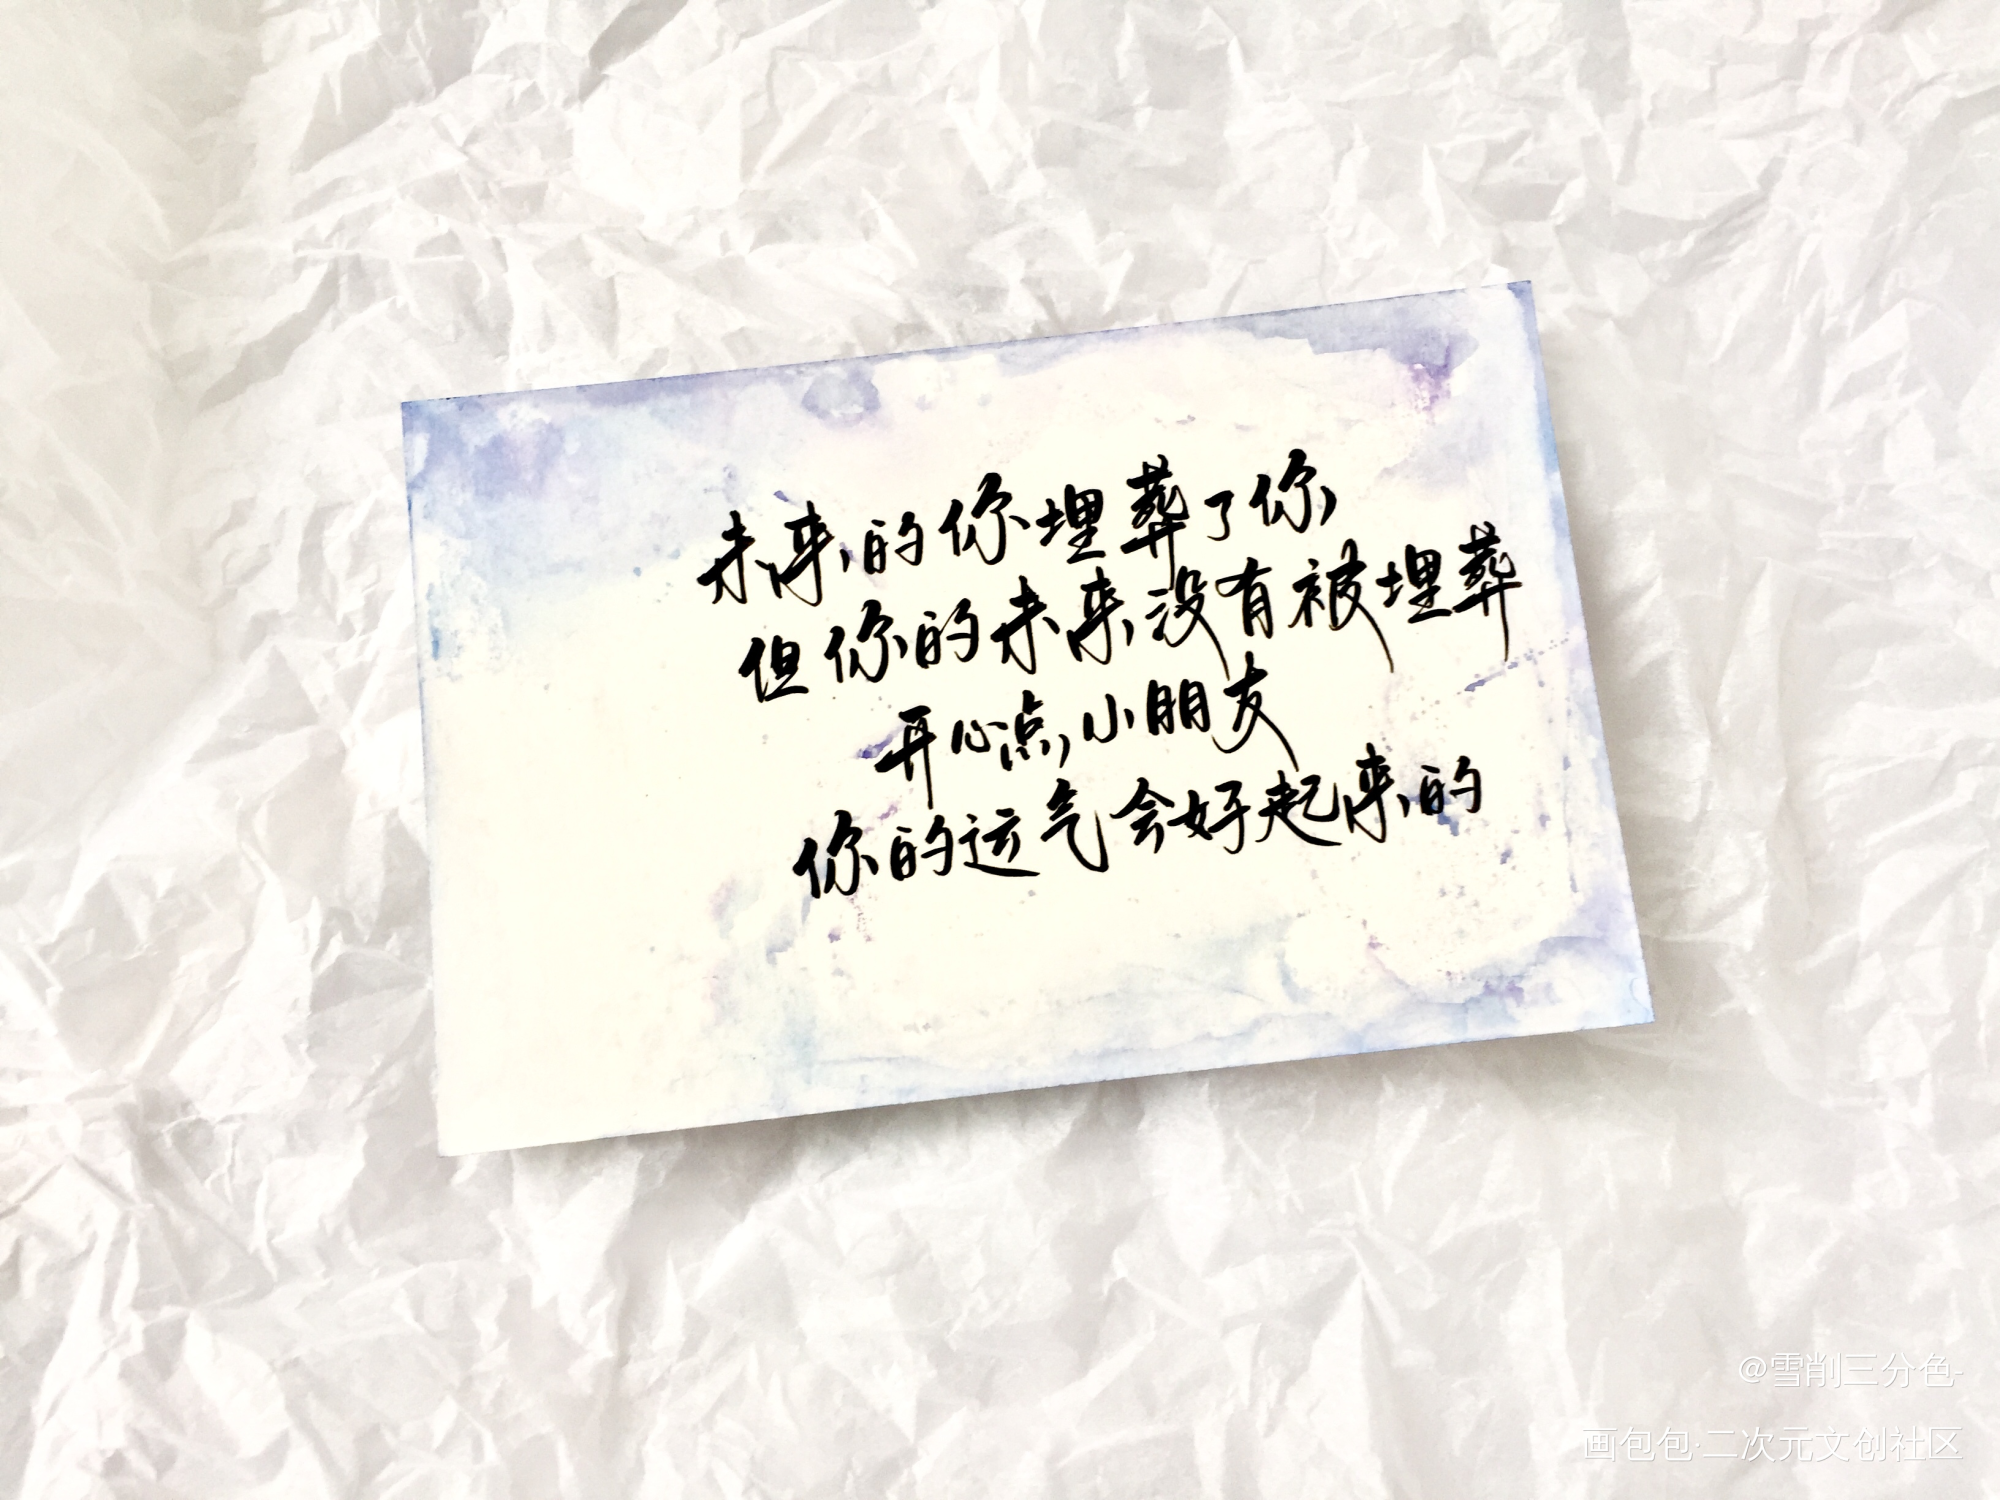 未来的你埋葬了你,
但你的未来没有被埋葬
开心点,小朋友
你的运气会好起来的
@雪削三分色-
画包包·二次元文创社区